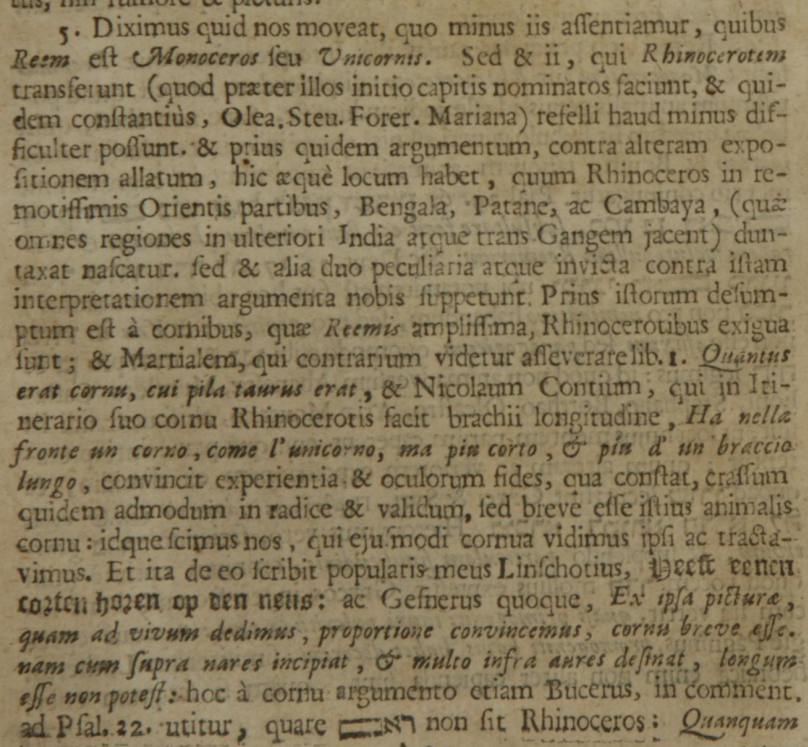 5. Diximus quid nos moveat, quo minus iis aſſentiamur, quibus
Reem eſt Monoceros ſeu Unicornis. Sed & ii, qui Rhinocerotem
transferunt (quod præter illos initio capitis nominatos faciunt, & qui-
dem conſtantiùs, Olea. Steu. Forer. Mariana) refelli haud minus dif-
ficulter poſſunt. & prius quidem argumentum, contra alteram expo-
ſitionem allatum, hic æquè locum habet, quum Rhinoceros in re-
motiſſimis Orientis partibus, Bengala, Patane, ac Cambaya, (quæ
omnes regiones in ulteriori India atque trans Gangem jacent) dun-
taxat naſcatur. ſed & alia duo peculiaria atque invicta contra iſtam
interpretationem argumenta nobis ſuppetunt. Prius iſtorum deſum-
ptum eſt à cornibus, quæ Reemis ampliſſima, Rhinocerotibus exigua
ſunt; & Martialem, qui contrarium videtur aſſeverare lib. 1. Quantus
erat cornu, cui pila taurus erat, & Nicolaum Contium, qui in Iti-
nerario ſuo cornu Rhinocerotis facit brachii longitudine, Ha nella
fronte un corno, come l'unicorno, ma piu corto, & piu d' un braccio
lungo, convincit experientia & oculorum fides, qua conſtat, craſſum
quidem admodum in radice & validum, ſed breve eſſe iſtius animalis
cornu: idque ſcimus nos, qui ejuſmodi cornua vidimus ipſi ac tracta-
vimus. Et ita de eo ſcribit popularis meus Linſchotius, Heeft eenen
corten horen op den neus: ac Geſnerus quoque, Ex ipſa pictura,
quam ad vivum dedimus, proportione convincemus, cornu breve eſſe.
nam cum ſupra nares incipiat, & multo infra aures deſinat, longum
eſſe non poteſt: hoc à cornu argumento etiam Bucerus, in comment.
ad Pſal. 22. utitur, quare non ſit Rhinoceros: Quanquam